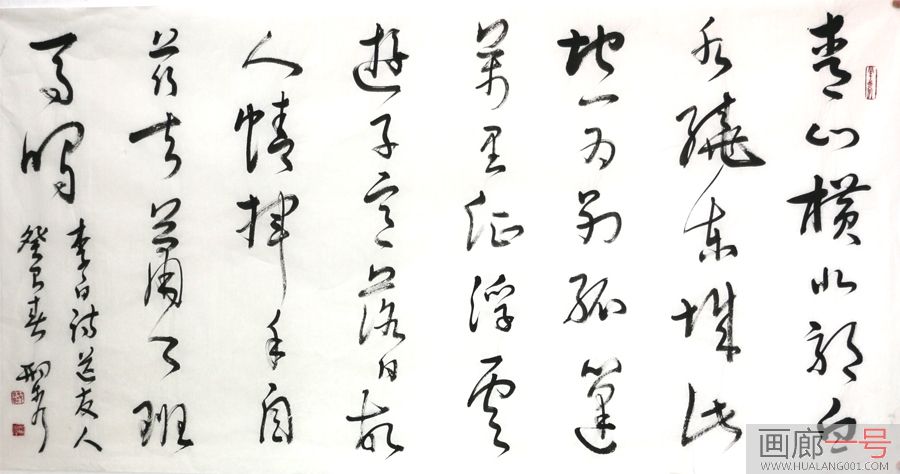 青山横北郭白
水绕东城此
地一为别孤蓬
万里征浮云
游子意落日故
人情挥手自
兹去萧々班
马鸣
李白诗送友人
癸巳春
画廊一号
WWW.HUALANG001.COM